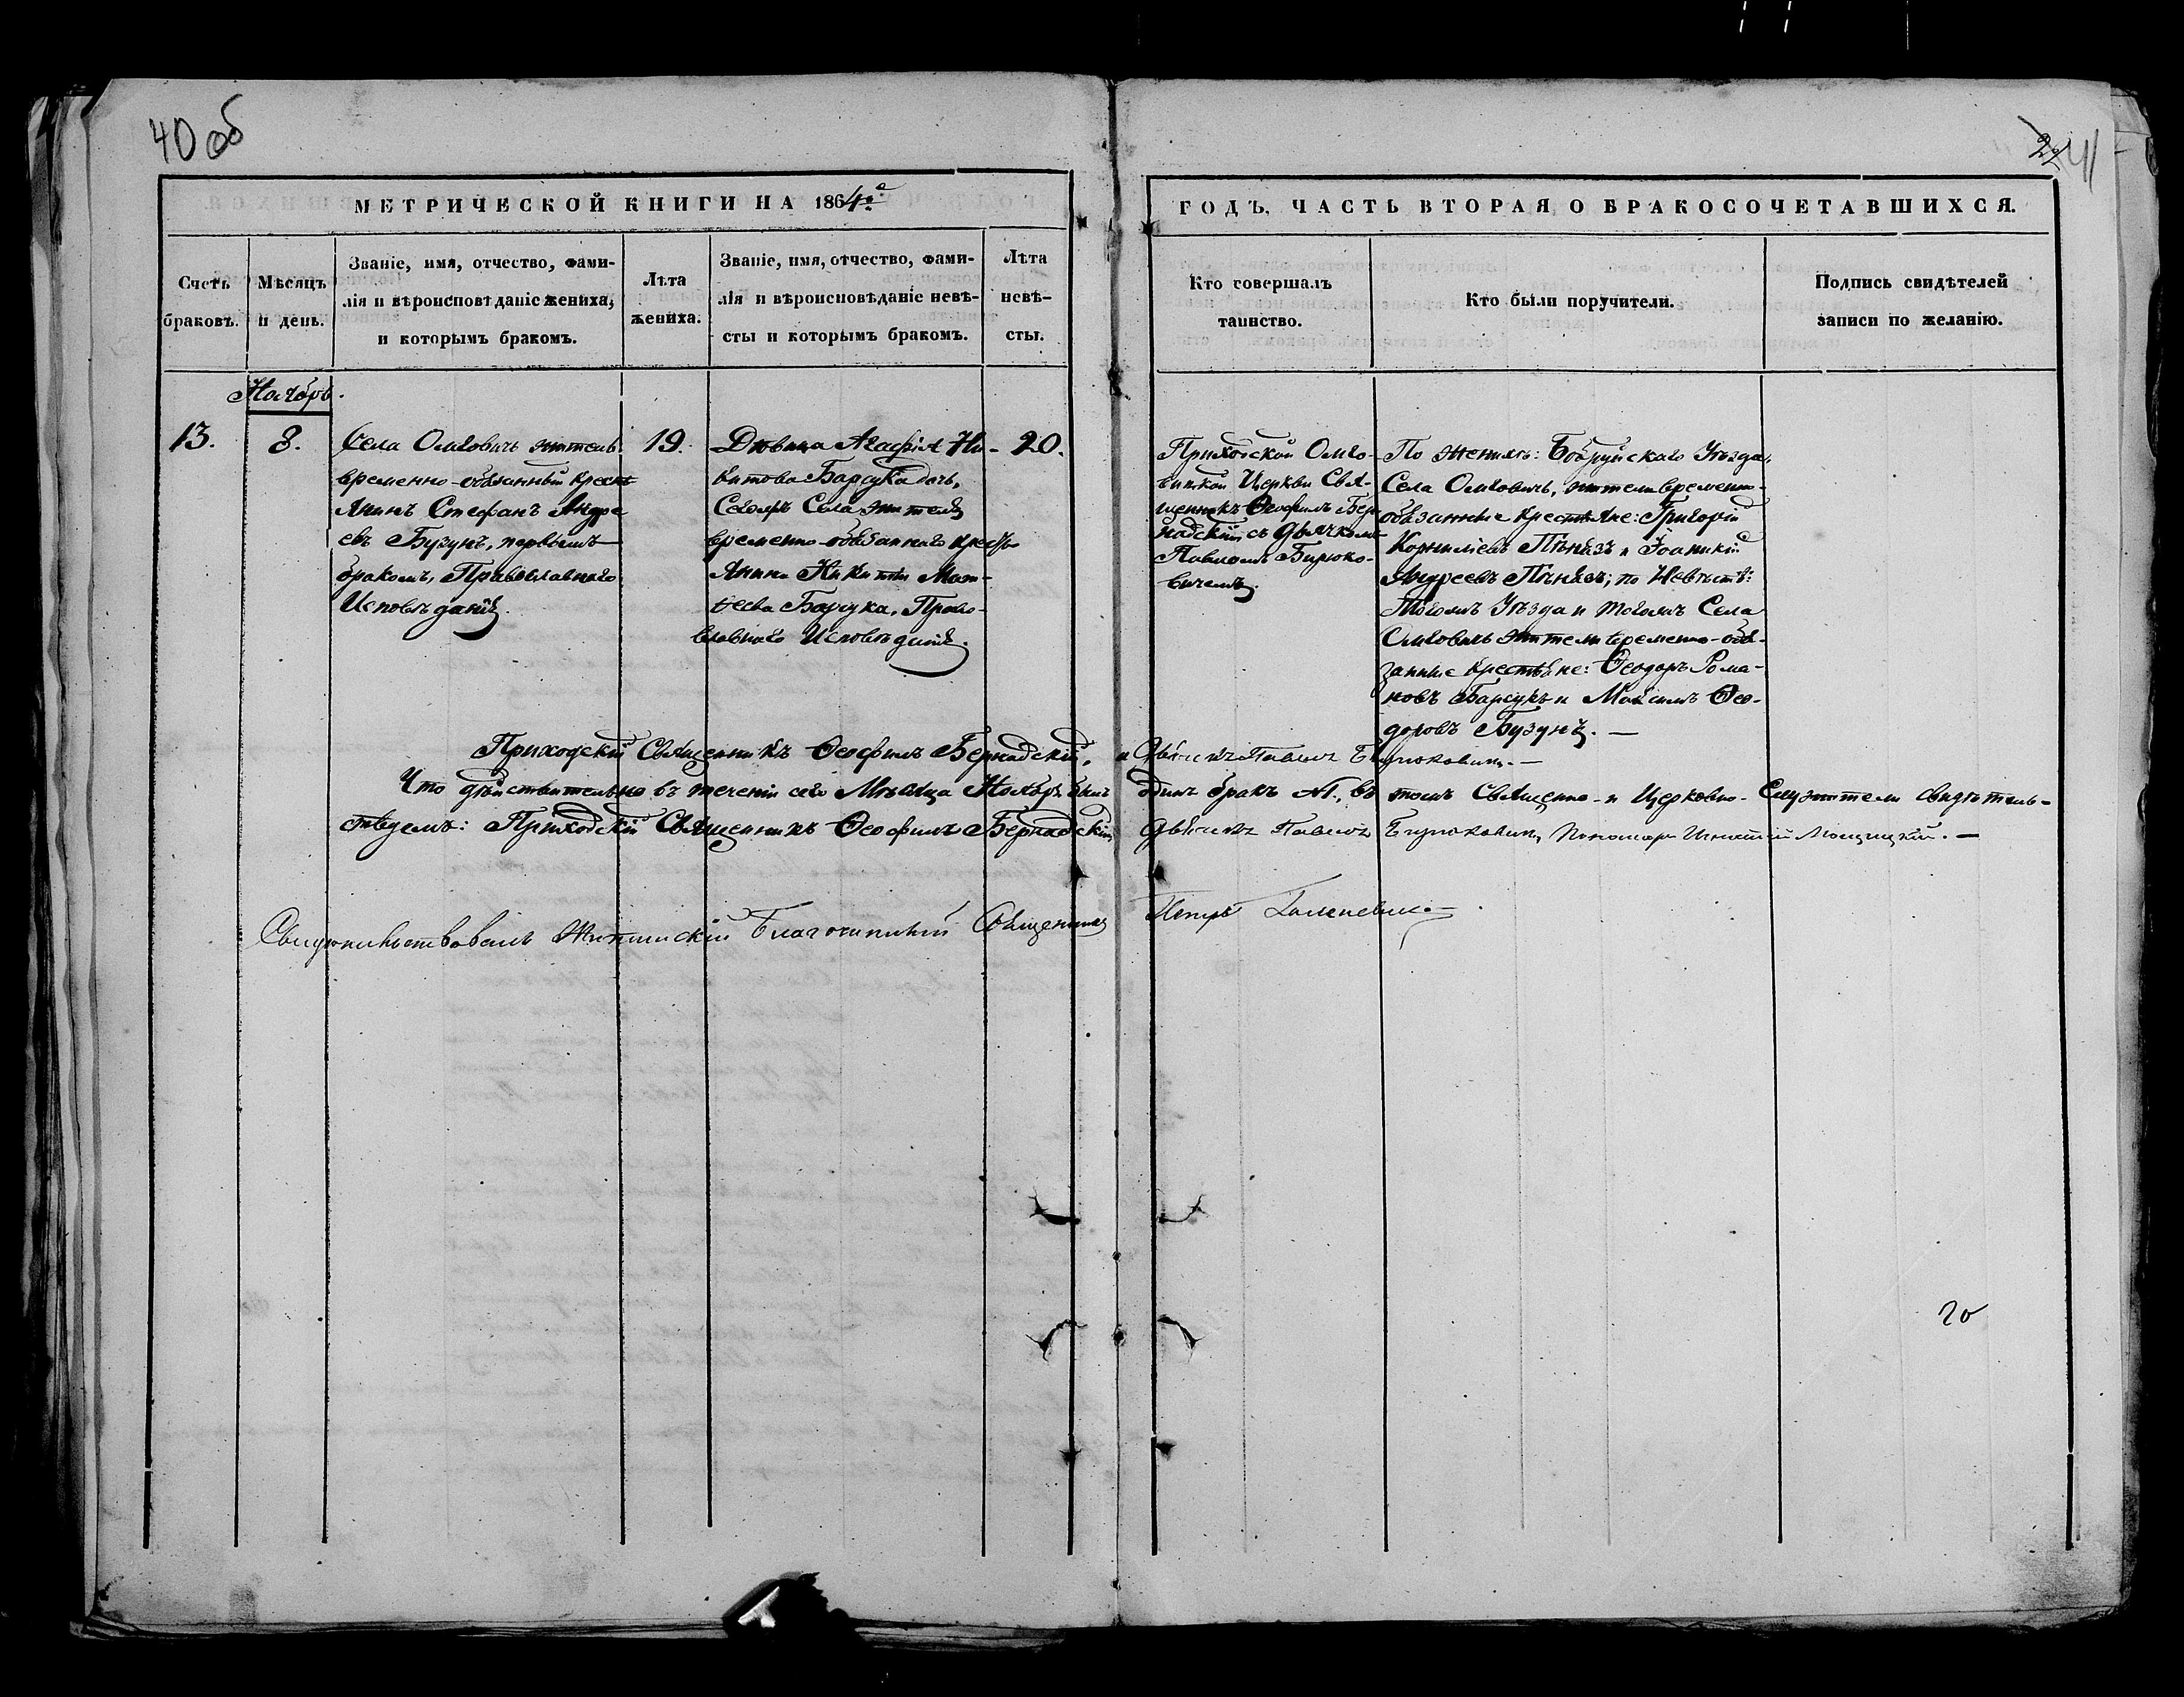 40 об
41
МЕТРИЧЕСКОЙ КНИГИ НА 1864 й
ГОДЪ, ЧАСТЬ ВТОРАЯ, О БРАКОСОЧЕТАВШИХСЯ.
Счетъ браковъ.
Мѣсяцъ и день.
Званіе, имя, отчество, фами-
лія и вѣроисповѣданіе жениха,
и которымъ бракомъ.
Лѣта
жениха.
Званіе, имя, отчество, фами-
лія и вѣроисповѣданіе невѣ-
сты и которымъ бракомъ.
Лѣта
невѣ-
сты.
Кто совершалъ
таинство.
Кто были поручители.
Подпись свидѣтелей
записи по желанію.
Ноябрь.
13.
8.
Села Омговичъ житель
временно-обязанный крест
янинъ Стефанъ Андре
евъ Бузунъ, первымъ
бракомъ, Православнаго
Исповѣданія.
19.
Дѣвица Агафія Ни-
китова Барсука дочь,
Тогожъ Села жителя
временно-обязаннаго кресть
янина Никиты Мат-
веева Барсука, Право-
славнаго Исповѣданія.
20.
Приходской Омго-
вицкой Церкви Свя-
щенникъ Ѳеофилъ Бер-
надскій съ дьячкомъ
Павломъ Бирюко-
вичемъ.
По женихѣ: Бобруйскаго Уѣзда,
Села Омговичъ, жители временно-
обязанные крестьяне: Григорій
Корниліевъ Пѣнязь и Іоаникій
Андреевъ Пѣнязь; по Невѣстѣ:
Тогожъ Уѣзда и тогожъ Села
Омговичъ жители временно-обя-
занные крестьяне: Ѳеодоръ Рома-
новъ Барсукъ и Максимъ Ѳео-
доровъ Бузунъ. —
Приходскій Священникъ Ѳеофилъ Бернадскій, и Дьячекъ Павелъ Бирюковичъ. —
Что дѣйствительно въ теченіи сего Мѣсяца Ноября былъ одинъ бракъ №1, въ томъ Священно- и Церковно-Служители свидѣтель-
ствуемъ: Приходскій Священникъ Ѳеофилъ Бернадскій Дьячекъ Павелъ Бирюковичъ, Пономарь Игнатій. —
Свидѣтельствовалъ Благочинный Священникъ Петръ
20